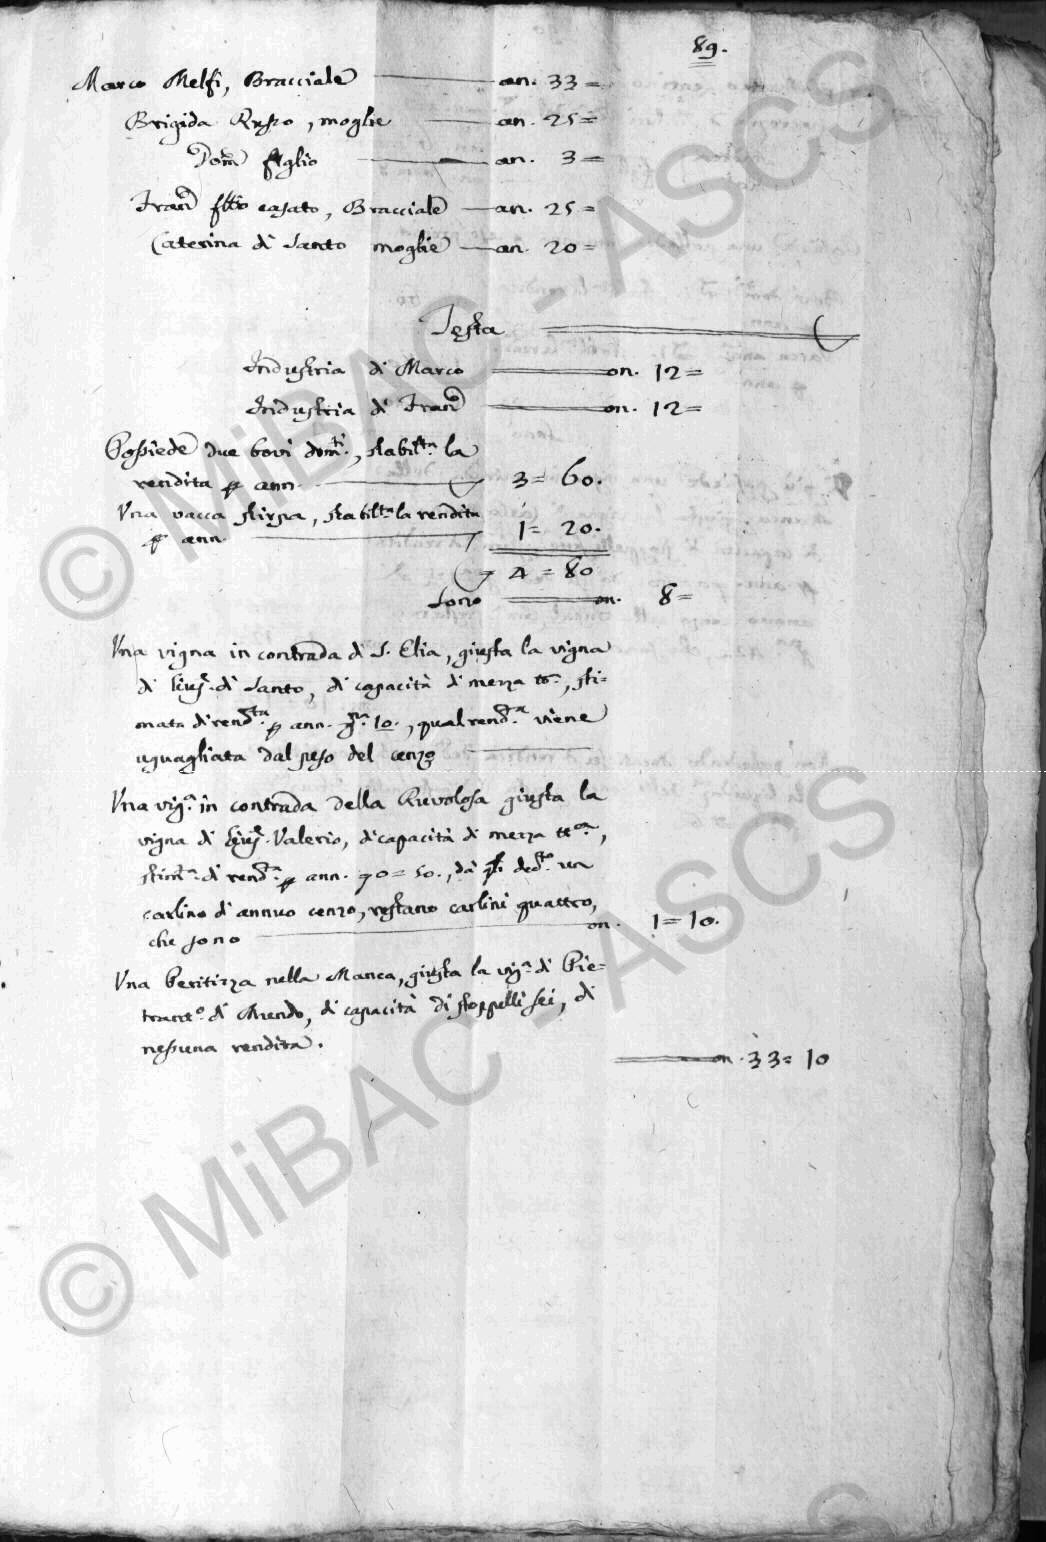 89.
Marco Melfi, Bracciale an. 33=
Brigida Russo, moglie an. 25=
Dom.co figlio an. 3=
Fran.co fr̃llo casato, Bracciale an. 25=
Caterina di Santo moglie an. 20=
Testa
Industria di Marco on. 12=
Industria di Fran.co on. 12=
Possiede due bovi dom.ti, stabil.ta la
rendita p ann. 3= 60.
Una vacca stirpa, stabilt.a la rendita
p ann. 1= 20.
4= 80
Sono on. 8=
Una vigna in contrada di S. Elia, giusta la vigna
di Gius.e di Santo, di capacità di mezza tt.a, sti=
mata di rend.ta p ann. g.na 10., qual rend.a viene
uguagliata dal peso del cenzo
Una vig.a in contrada della Ruvolosa giusta la
vigna di Gius.e Valerio, di capacità di mezza tt.a,
stim.a di rend.a p ann. 70=50., da q.li ded.to un
carlino di annuo cenzo, restano carlini quattro,
che sono on. 1=10.
Una Geritizza nella Manca, giusta la vig.a di Pie=
di capacità di stoppelli sei, di
nessuna rendita.
on. 33=10
© MiBAC - ASCS
© MiBAC - ASCS